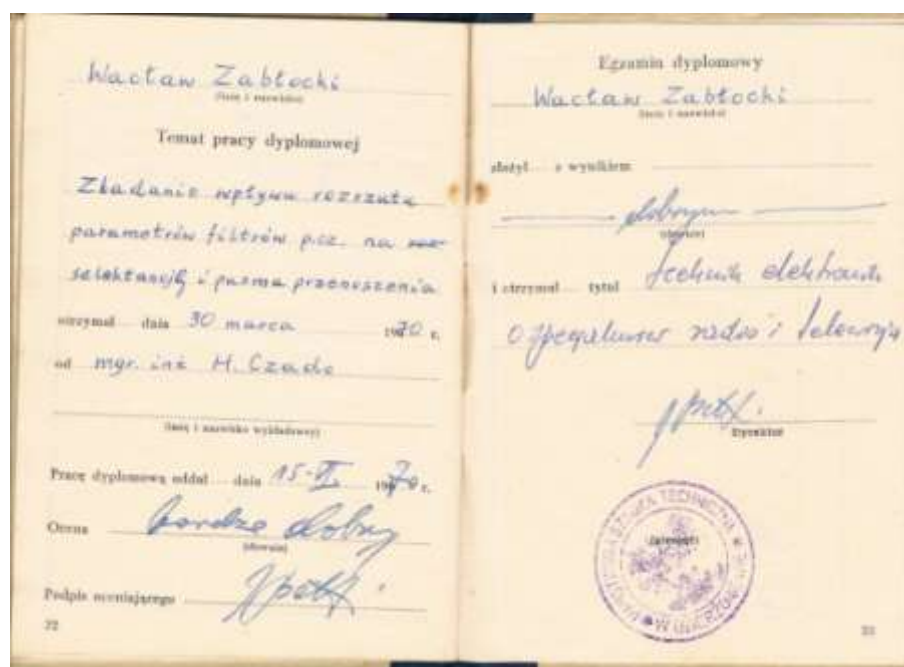 Wacław Zabłocki
(Imię i nazwisko)
Temat pracy dyplomowej
Zbadanie wpływu rozrzutu
parametrów filtrów p.cz. na
selektancję i pasma przenoszenia
otrzymał dnia 30 marca 1970 r.
od mgr. inż M. Czado
(Imię i nazwisko wykładowcy)
Pracę dyplomową oddał dnia 15-VI 1970 r.
Ocena bardzo dobry
(słownie)
Podpis oceniającego
22
Egzamin dyplomowy
Wacław Zabłocki
(Imię i nazwisko)
złożył z wynikiem
dobrym
(słownie)
i otrzymał tytuł technik elektronik
o specjalności radio i telewizja
Dyrektor
TECHNICZNA
23